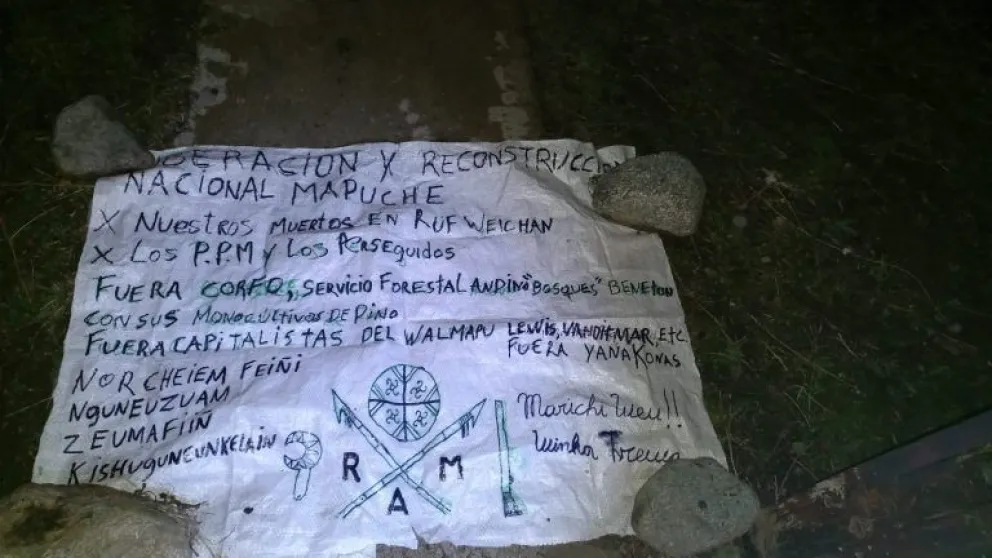 BERACION Y RECONSTRUCCION
NACIONAL MAPUCHE
X NUESTROS MUERTOS EN RUF WEICHAN
X LOS P.P.M Y LOS PERSEGUIDOS
FUERA CORFO, SERVICIO FORESTAL ANDINO "BOSQUES" BENETON
CON SUS MONOCULTIVOS DE PINO
FUERA CAPITALISTAS DEL WALMAPU LEWIS, VANDITMAR, ETC.
FUERA YANAKONAS
NOR CHEIEM FEIÑI
NGUNEUZUAM
ZEUMAFIIÑ
KISHUGUNEUNKELAIN
R A M
Marichi Weu!!